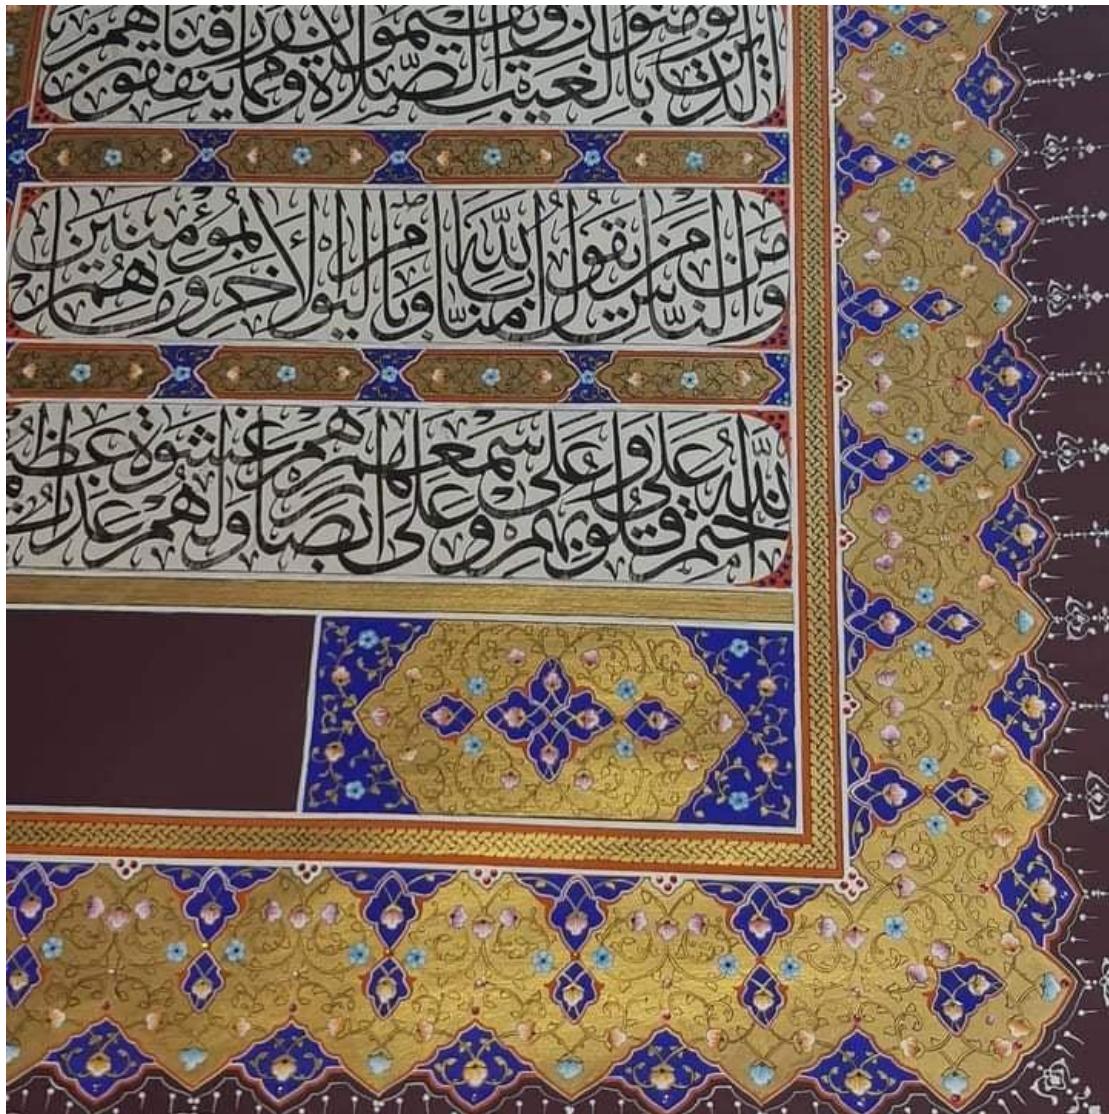 الذين يؤمنون بالغيب ويقيمون الصلاة ومما رزقناهم ينفقون
ومن الناس من يقول ءامنا بالله وباليوم الأخر وما هم بمؤمنين
ختم الله على قلوبهم وعلى سمعهم وعلى أبصارهم غشوة ولهم عذاب